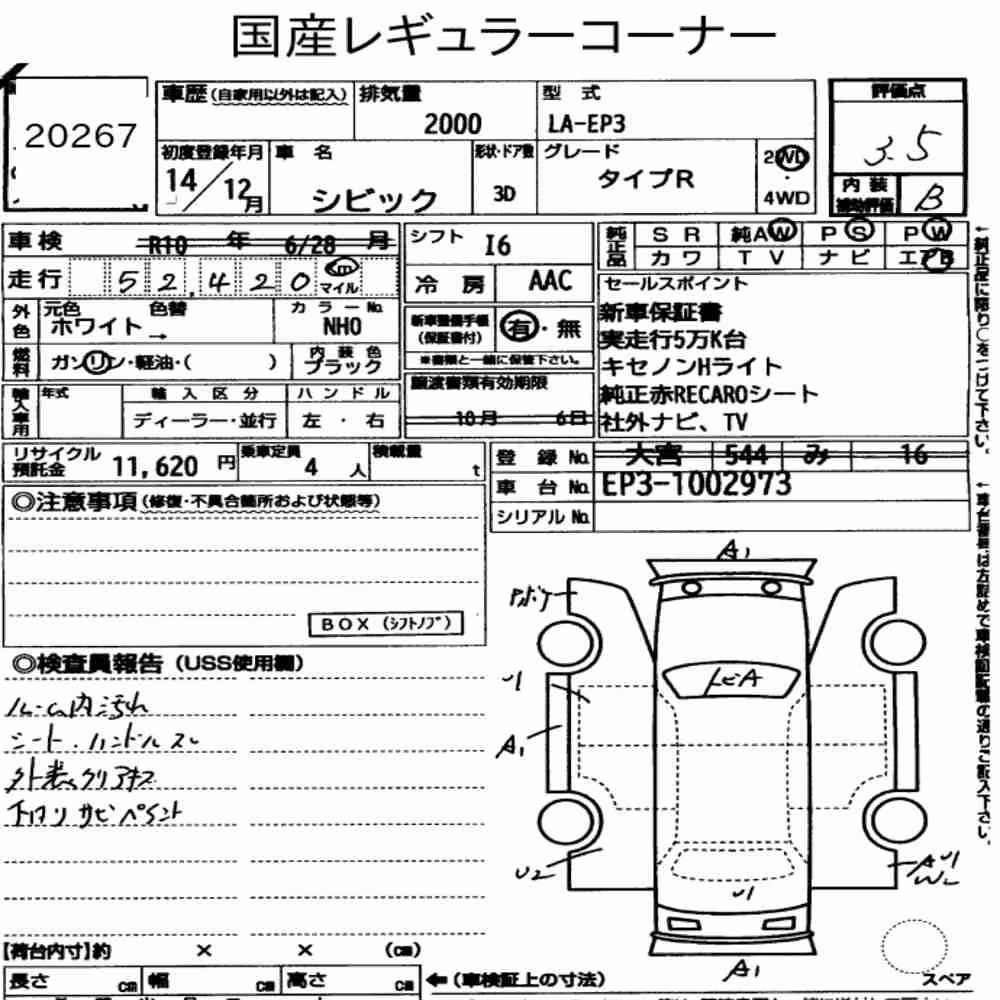 国産レギュラーコーナー
20267
車歴 (自家用以外は記入) 排気量 型式 評価点
2000 LA-EP3
3.5
初度登録年月 車名 形状・ドア数 グレード 2WD
14/12月 シビック 3D タイプR ・ 4WD
内装補助評価 B
車検 R10年 6/28月 シフト I6
純正品 SR 純AW PS PW
カワ TV ナビ エアB
走行 52,420 km マイル 冷房 AAC
セールスポイント
外色 元色 色替 カラーNo.
ホワイト → NH0
新車整備手帳(保証書付) 有・無
※書類と一緒に保管下さい。
新車保証書
実走行5万K台
キセノンHライト
純正赤RECAROシート
社外ナビ、TV
燃料 ガソリン・軽油・( ) 内装色 ブラック
譲渡書類有効期限
10月 6日
輸入車用 年式 輸入区分 ハンドル
ディーラー・並行 左・右
リサイクル預託金 11,620円 乗車定員 4人 積載量 t
登録No. 大宮 544 み 16
車台No. EP3-1002973
シリアルNo.
◎注意事項 (修復・不具合箇所および状態等)
BOX (ｼﾌﾄﾉﾌﾞ)
◎検査員報告 (USS使用欄)
ルーム内汚れ
シート・ハンドルスレ
外装クリアキズ
下回りサビペイント
A1
U1
A1
U2
U1
A U1
A1
スペア
【荷台内寸】約 × × (cm)
長さ cm 幅 cm 高さ cm
←(車検証上の寸法)
←純正品に限り○をつけて下さい。
←車台番号は方認めで車検証記載の通りご記入下さい。